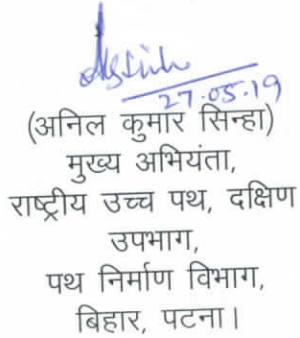 27.05.19
(अनिल कुमार सिन्हा)
मुख्य अभियंता,
राष्ट्रीय उच्च पथ, दक्षिण
उपभाग,
पथ निर्माण विभाग,
बिहार, पटना।